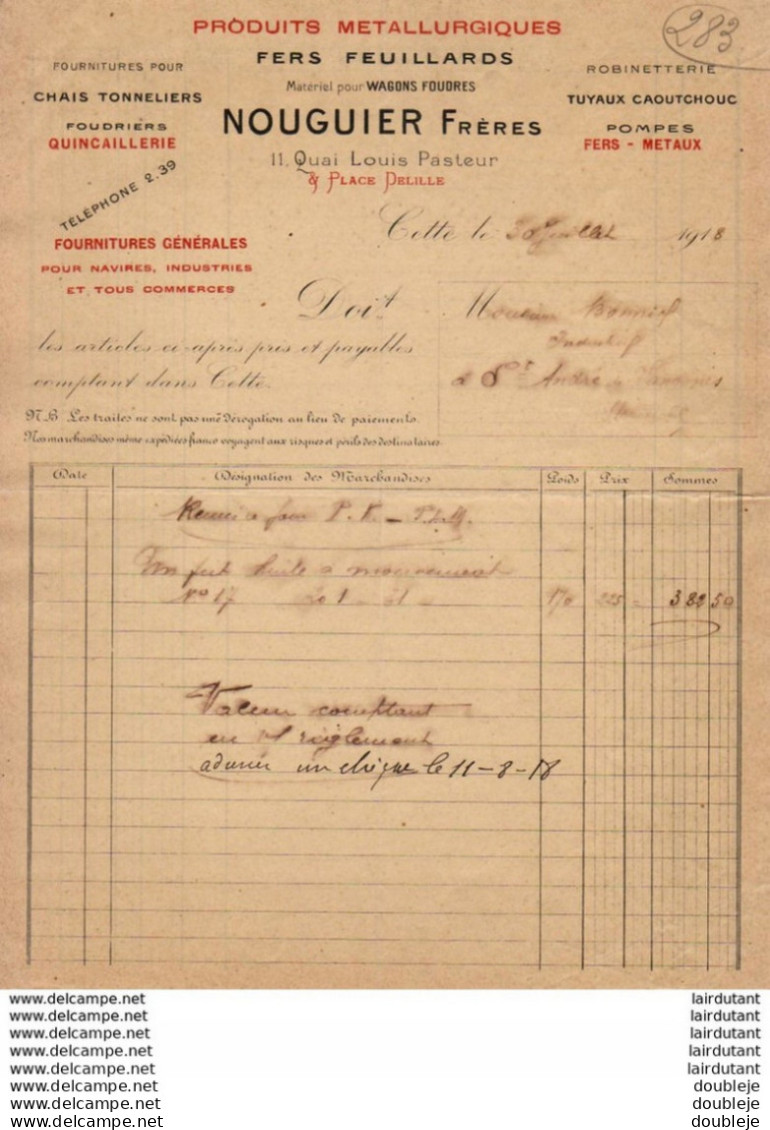 PRODUITS METALLURGIQUES
283
FERS FEUILLARDS
FOURNITURES POUR
CHAIS TONNELIERS
FOUDRIERS
QUINCAILLERIE
Matériel pour WAGONS FOUDRES
NOUGUIER FRÈRES
11, Quai Louis Pasteur
& PLACE DELILLE
ROBINETTERIE
TUYAUX CAOUTCHOUC
POMPES
FERS - METAUX
TÉLÉPHONE 2.39
FOURNITURES GÉNÉRALES
POUR NAVIRES, INDUSTRIES
ET TOUS COMMERCES
Cette le 30 Juillet 1918
Doit Monsieur
les articles ci-après pris et payables
comptant dans Cette.
à St André de
N.B. Les traites ne sont pas une dérogation au lieu de paiements.
Nos marchandises même expédiées franco voyagent aux risques et périls des destinataires.
Date Désignation des Marchandises Poids Prix Sommes
P. V. - P.L.M.
Un fut huile a mouvement
No 67 201 - 31 170 225 - 382 50
Valeur comptant
en règlement
un chèque le 11-8-18
www.delcampe.net lairdutant
www.delcampe.net lairdutant
www.delcampe.net lairdutant
www.delcampe.net lairdutant
www.delcampe.net lairdutant
www.delcampe.net doubleje
www.delcampe.net doubleje
www.delcampe.net doubleje